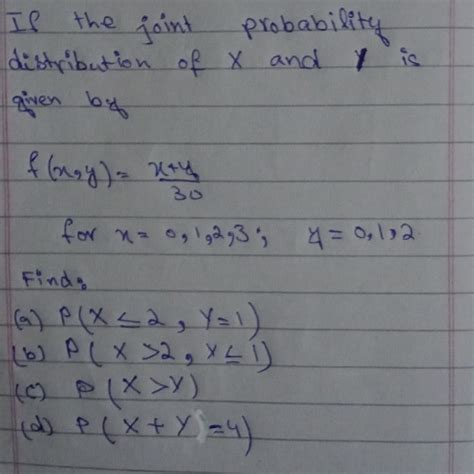 If the joint probability
distribution of X and Y is
given by
f(x,y) = x+y/30
for x = 0,1,2,3; y = 0,1,2.
Find:
(a) P(X ≤ 2, Y=1)
(b) P(X >2, Y≤ 1)
(c) P(X>Y)
(d) P(X + Y =4)